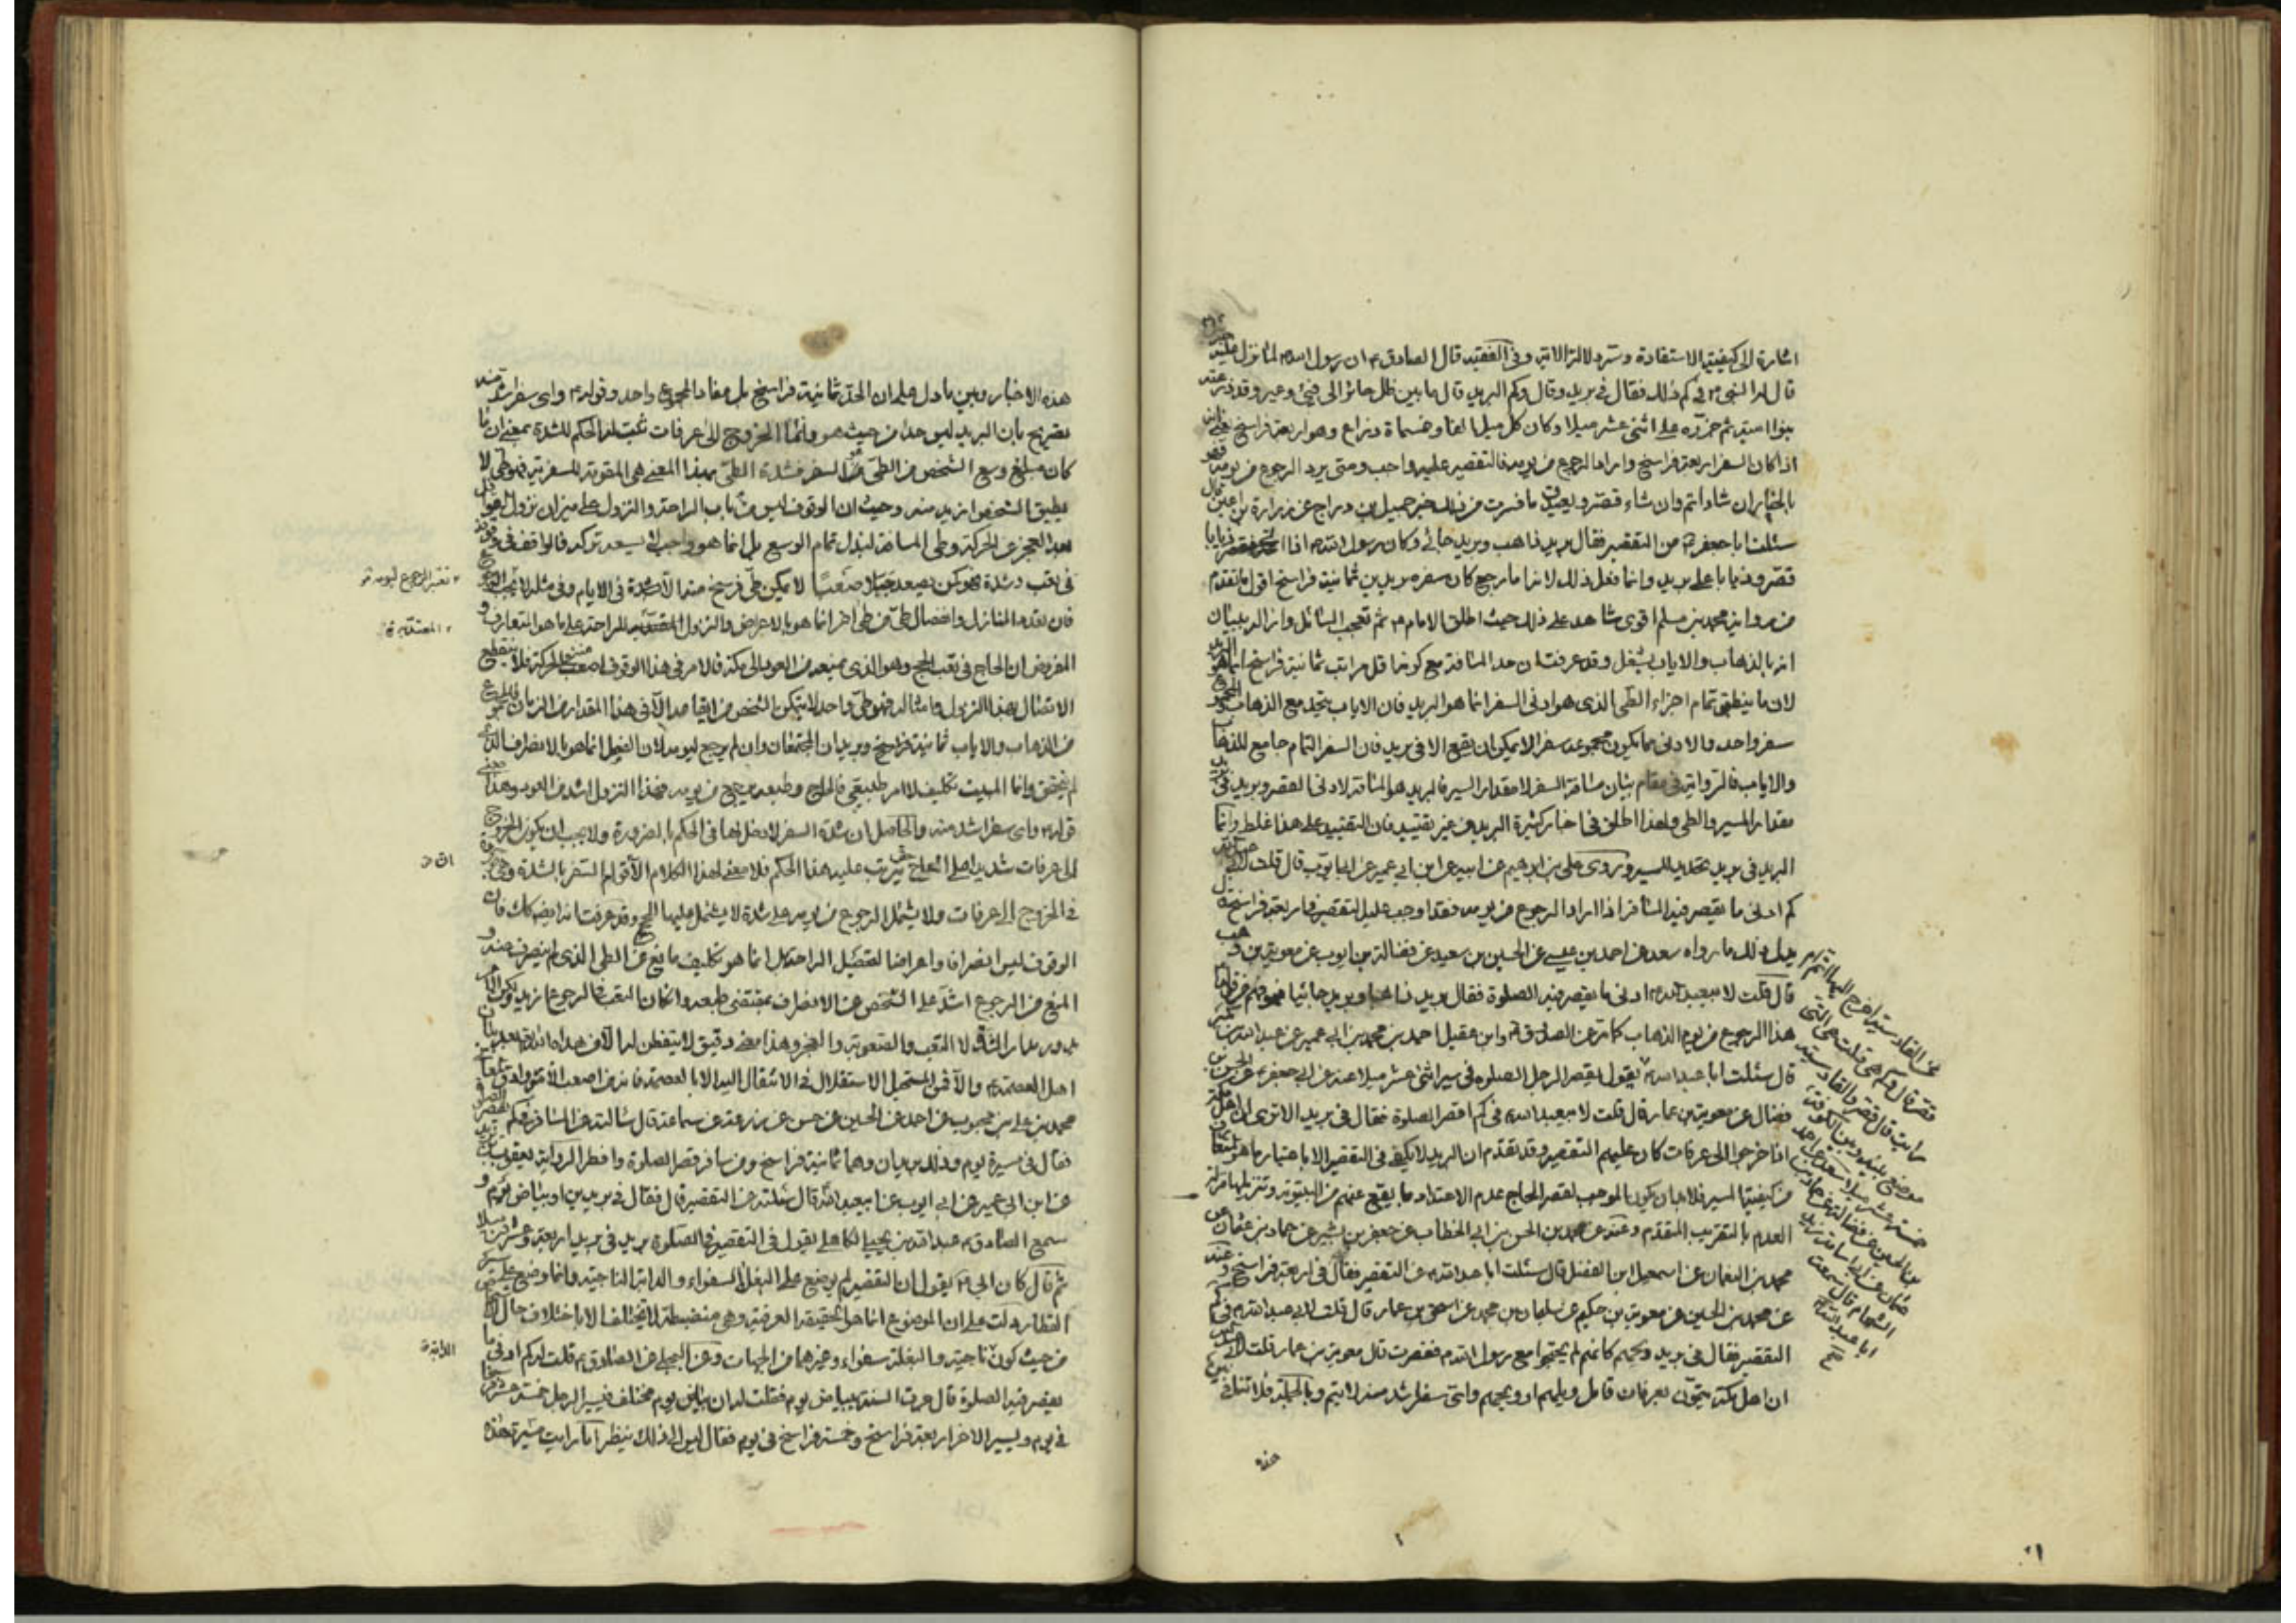 اشارة الى كيفية الاستفادة وسترد لالة الاتية وفى الفقيه قال الصادق ع ان رسول الله ص لما نزل عليه جبرئيل
قال له النبى ص فى كم ذلك فقال فى بريد وقال وكم البريد قال ما بين ظل عائر الى فيئ وعير وقد ذرعته
بنوا امية ثم جزؤه على اثنى عشر ميلا وكان كل ميل الفا وخمسمأة ذراع وهو اربعة فراسخ يعنى انه
اذا كان السفر اربعة فراسخ واراد الرجوع من يومه فالتقصير عليه واجب ومتى يرد الرجوع من يومه فهو
بالخيار ان شاء اتم وان شاء قصر و ما فسرت من ذلك خبر جميل بن دراج عن زرارة بن اعين قال
سئلت ابا جعفر ع من التقصير فقال بريد ذاهب وبريد جائى وكان رسول الله ص اذا اتى ذبابا
قصر وذباب على بريد وانما فعل ذلك لانه اذا رجع كان سفره بريدين ثمانية فراسخ اقول ما تقدم
من رواية محمد بن مسلم اقوى شاهد على ذلك حيث اطلق الامام ع ثم تعجب السائل واراد بيان
انه بالذهاب والاياب يشغل وقد عرفت ان حد المسافة مع كونها قل مراتب ثمانية فراسخ انما هو البريد
لان ما ينطبق تمام اجزاء الطى الذى هو ادنى السفر انما هو البريد فان الاياب يتحد مع الذهاب
سفر واحد والادنى مما يكون مجموعه سفر الا يمكن ان يقع الا فى بريد فان السفر التام جامع للذهاب
والاياب فالرواية فى مقام بيان مسافة السفر لا مقدار السير فالبريد هو المسافة لادنى القصر وبريد فى بريد
مقدار المسير والطى ولهذا اطلق فى اخبار كثيرة البريد من غير تقييد فان التقييد على هذا غلط وانما
البريد فى بريد تحديد للسير وروى على بن ابراهيم عن ابيه عن ابن ابى عمير عن ابى ايوب قال قلت لابى
كم ادنى ما يقصر فيه المسافر اذا اراد الرجوع من يومه فقد اوجب عليه التقصير فى اربعة فراسخ
يدل ذلك ما رواه سعد عن احمد بن عيسى عن الحسين بن سعيد عن فضالة بن ايوب عن معوية بن وهب
قال قلت لابيعبد الله ع ادنى ما يقصر فيه الصلوة فقال بريد ذاهبا وبريد جائيا
هذا الرجوع من يوم الذهاب كما ترى عن الصادق ع وابن عقيل احمد بن محمد بن ابى عمير عن عبد الله بن
قال سئلت ابا عبد الله ع يقول يقصر الرجل الصلوة فى سير اثنى عشر ميلا عنه عن ابى جعفر ع عن الحسن بن
فضال عن معوية بن عمار قال قلت لابيعبد الله ع فى كم اقصر الصلوة فقال فى بريد الا ترى ان اهل مكة
اذا خرجوا الى عرفات كان عليهم التقصير وقد تقدم ان البريد لا يكفى فى التقصير الا باعتبار ما هو
من كيفيتها لسير فلابد ان يكون الموجب لقصر الحاج عدم الاعتداد بما يقع عنهم من البيتوتة وتنزيلها منزلة
العدم بالتقريب المتقدم وعنه عن محمد بن الحسن بن ابى الخطاب عن جعفر بن بشير عن حماد بن عثمان عن
محمد بن النعمان عن اسمعيل ابن الفضل قال سئلت ابا عبد الله ع عن التقصير فقال فى اربعة فراسخ وعنه
عن محمد بن الحسين عن معوية بن حكيم عن سليمان بن محمد عن اسحق بن عمار قال قلت لابى عبد الله ع فى كم
التقصير فقال فى بريد ويحهم كانهم لم يحجوا مع رسول الله ص فقصرت قال معوية بن عمار قلت لابى
ان اهل مكة يتمون بعرفات قال ويلهم او ويحهم واى سفر اشد منه لا يتم وبالجملة فلا تنافى
عن القادسية اخرج اليها اتم ام
قصر قال وكم هى قلت هى التى
رأيت قال قصر والقادسية
موضع بينه وبين الكوفة
خمسة عشر ميلا سعد عن احمد
عن الحسين عن فضالة عن حماد بن
عثمان عن ابى اسامة زيد
الشحام قال سمعت
ابا عبد الله ع
هذه
هذه الاخبار وبين ما دل على ان الحد ثمانية فراسخ بل مفاد المجموع واحد وقوله ع واى سفر اشد منه
تصريح بان البريد ليس حدا من حيث هو وانما الخروج الى عرفات ثبت له الحكم للشدة بمعنى ان ما
كان مبلغ وسع الشخص من الطى من السفر فشدة الطى بهذا المعنى هى المقومة للسفرية فهو طى لا
يطيق الشخص ازيد منه وحيث ان الوقوف ليس من باب الراحة والنزول على ميزان نزول
بعد العجز عن الحركة وطى المسافة لبذل تمام الوسع بل انما هو واجب لا يسعه تركه فالواقف فى
فى تعب وشدة فهو كمن يصعد جبلا صعبا لا يمكن طى فرسخ منه الا فى الايام وفى مثله لا يجب
فان تعدد المنازل وانفصال طى من طى اخر انما هو بالاعراض والنزول للراحة على ما هو المتعارف و
المفروض ان الحاج فى تعب الحج وهو الذى يمنعه من العود الى مكة فالامر فى هذا الوقوف اصعب من الحركة فلا ينقطع
الاتصال بهذا النزول وامثاله فهو طى واحد لا يتمكن الشخص من ايقاعه الا فى هذا المقدار من الزمان
من الذهاب والاياب ثمانية فراسخ وبريدان المجتمعان وان لم يرجع ليومه لان الفصل انما هو بالانصراف الذى
لم يتحقق وانما المبيت تكليف لا امر طبيعى فالحاج وطبعه يرجع من يومه فهذا النزول اشد من العود وهذا معنى
قوله ع واى سفر اشد منه والحاصل ان شدة السفر لا دخل لها فى الحكم بالضرورة ولا يجب ان يكون الخروج
الى عرفات شديدا على الحاج حتى يترتب عليه هذا الحكم فلا معنى لهذا الكلام الا قوام السفر بالشدة
فى الخروج الى عرفات ولا يشمل الرجوع من يومه على شدة لا يشمل عليها الحج وقد عرفت انه ايضا كك فان
الوقوف ليس انصرافا واعراضا لتحصيل الراحة بل انما هو تكليف مانع عن الطى الذى لم ينصرف عنه و
المنع من الرجوع اشد على الشخص من الانصراف بمقتضى طبعه وان كان التعب فى الرجوع ازيد
لا التعب والصعوبة والعجز وهذا معنى دقيق لا يتفطن له الا من هداه الله تعالى
اهل العصمة ع والا فمن المستحيل الاستقلال فى الانتقال اليه الا بالعصمة فانه من اصعب الامور وادقها
محمد بن على بن محبوب عن احمد عن الحسين عن حسن عن زرعة عن سماعة قال سالته عن المسافر فى كم يقصر الصلوة
فقال فى مسيرة يوم وذلك بريدان وهما ثمانية فراسخ ومن سافر قصر الصلوة وافطر الرواية يعقوب بن يزيد
عن ابن ابى عمير عن ابى ايوب عن ابيعبد الله قال سئلته عن التقصير قال فقال فى بريدين او بياض يوم و
سمع الصادق ع عبد الله بن يحيى الكاهلى يقول فى التقصير فى الصلوة بريد فى بريد اربعة وعشرون ميلا
ثم قال كان ابى ع يقول ان التقصير لم يوضع على البغلة السفواء والدابة الناجية وانما وضع على سير
القطار دلت على ان الموضوع انما هو الحقيقة العرفية وهى منضبطة لا تختلف الا باختلاف حال
من حيث كون ناجية والبغلة سفواء وغيرهما من الجهات وعن البجلى عن الصادق ع قلت له كم ادنى ما
يقصر فيه الصلوة قال جرت السنة ببياض يوم فقلت له ان بياض يوم مختلف فيسير الرجل خمسة عشر فرسخا
فى يوم ويسير الاخر اربعة فراسخ وخمسة فراسخ فى يوم فقال ليس الى ذلك ينظر اما رايت سير هذه